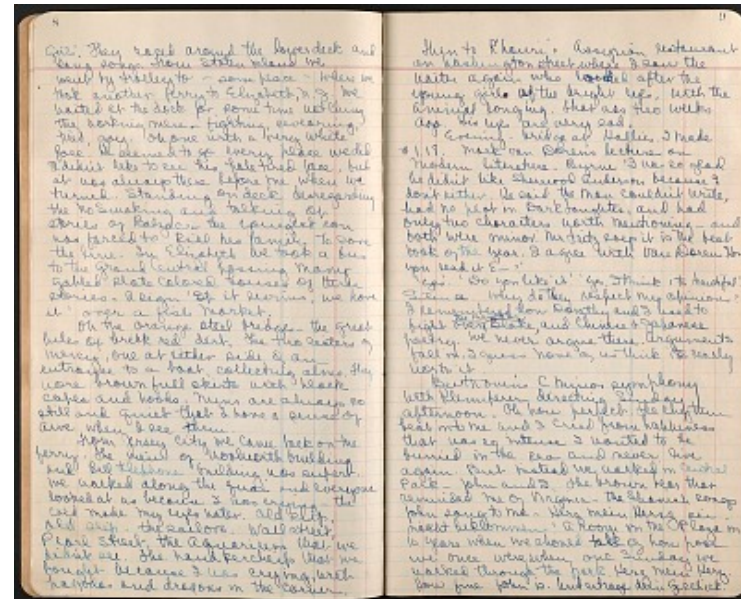 8
They raced around the lower deck and
sang songs. From Staten Island we
went by trolley to - some place - where we
took another ferry to Elizabeth N.J. We
waited at the dock for some time watching
the working men - fighting, swearing,
one with a very white
face. He seemed to go every place we did
I didn't like to see his pale tired face, but
it was always there before me when we
turned. Standing on deck disregarding
the no smoking and talking of
stories of
was forced to kill his family to save
the time. In Elizabeth we took a bus
to the Grand Central passing many
gabled slate colored houses of three
stories. A sign "If it swims, we have
it" over a fish market.
Oh the orange steel bridge - the great
piles of brick red dirt. The two sisters of
mercy, one at either side of an
entrance to a boat collecting alms. They
wore brown full skirts with black
capes and hoods. Nuns are always so
still and quiet that I have a sense of
awe when I see them.
From Jersey City we came back on the
ferry. The view of Woolworth building
and Bell telephone building was superb.
We walked along the quai and everyone
looked at us because I was crying - the
cold made my eyes water. Old slip,
old ship, the sailors. Wall street,
Pearl street, the Aquarium that we
didn't see. The handkerchief that we
bought because I was crying, with
and dragons in the corner.
9
Then to Khouri's Assyrian restaurant
on Washington street where I saw the
waiter again who looked after the
young girls of the bright legs with the
animal longing. That was two weeks
ago. His eyes are very sad.
Evening - bridge at Hallie's. I made
Mark Van Doren's lecture on
modern literature. I was so glad
he didn't like Sherwood Anderson because I
don't either. He said the man couldn't write,
had no plot in Dark Laughter, and had
only two characters worth mentioning - and
both were minor. says it is the best
book of the year. I agree with Van Doren.
you read it
"Yes." "Do you like it" "Yes, I think it's beautiful"
Silence. Why do they respect my opinion?
I remembered how Dorothy and I used to
fight over and Chinese & Japanese
poetry. We never argue there. Arguments
fall in. I guess none of us think it's really
worth it.
Beethoven's C Minor symphony
with Klemperer directing Sunday
afternoon. Oh how perfect. The rhythm
beat into me and I cried from happiness
that was so intense I wanted to be
buried in the sea and never live
again. But instead we walked in Central
Park - John and I. The brown bear that
reminded me of Wagner - the Spanish songs
John sang to me - Herz mein Herz
A room in the Plaza in
10 years when we should take a how poor
we once were when one Sunday we
walked through the park. Herz mein Herz.
How fine John is.